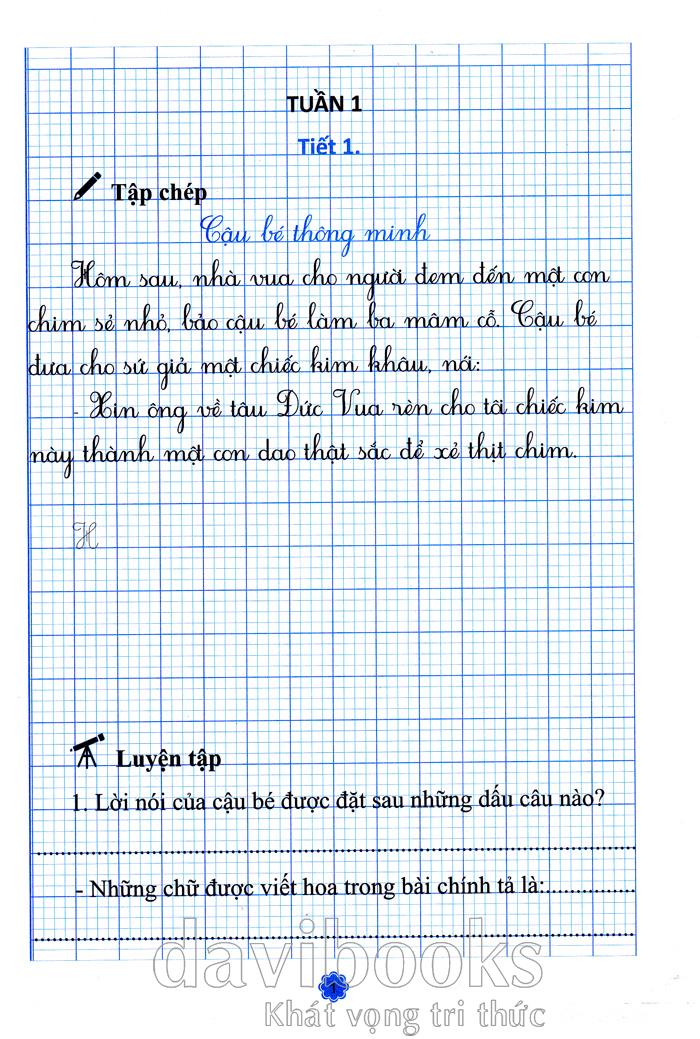 TUẦN 1
Tiết 1.
Tập chép
Cậu bé thông minh
Hôm sau, nhà vua cho người đem đến một con
chim sẻ nhỏ, bảo cậu bé làm ba mâm cỗ. Cậu bé
đưa cho sứ giả một chiếc kim khâu, nói:
- Xin ông về tâu Đức Vua rèn cho tôi chiếc kim
này thành một con dao thật sắc để xẻ thịt chim.
H
Luyện tập
1. Lời nói của cậu bé được đặt sau những dấu câu nào?
- Những chữ được viết hoa trong bài chính tả là:
davibooks
1
Khát vọng tri thức